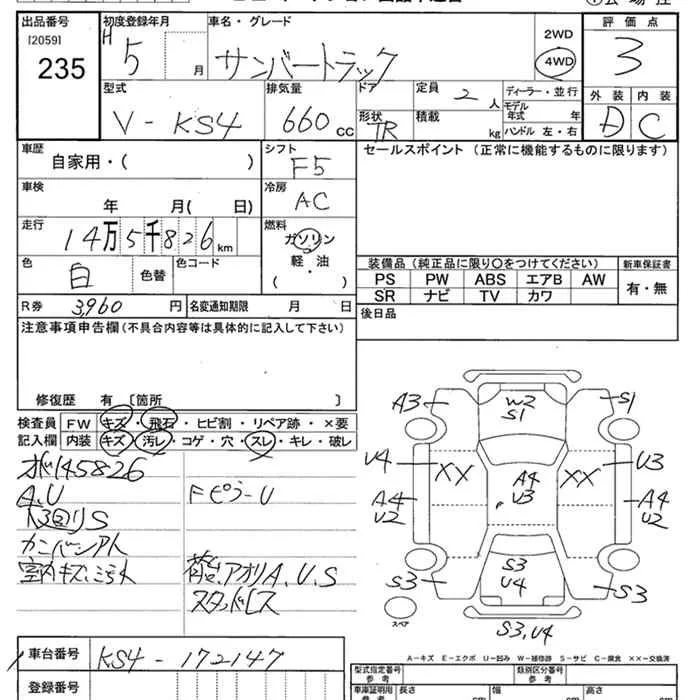 出品番号 初度登録年月 車名・グレード 評価点
[2059] H 5 月 サンバートラック 2WD 4WD 3
235
型式 排気量 ドア 定員 2 人 ディーラー・並行 外装 内装
V - KS4 660 cc 形状 TR 積載 kg モデル年式 年 ハンドル 左・右 D C
車歴 シフト セールスポイント (正常に機能するものに限ります)
自家用・( ) F5
車検 冷房
年 月( 日) AC
走行 燃料
14万5千826km ガソリン
軽・油
( )
色 白 色替 色コード
装備品 (純正品に限り〇をつけてください) 新車保証書
PS PW ABS エアB AW 有・無
SR ナビ TV カワ
R券 3,960 円 名変通知期限 月 日
後日品
注意事項申告欄(不具合内容等は具体的に記入して下さい)
修復歴 有 〔箇所 〕
検査員 FW キズ・飛石・ヒビ割・リペア跡・×要
記入欄 内装 キズ・汚レ・コゲ・穴・スレ・キレ・破レ
145826
A.U Fピラ-U
下回りS
室内キズ、 荷台、アオリA、U、S
A3 W2 S1 S1
U4 XX A4 U3 XX U3
A4 U2 A4 U2
S3 S3 U4 S3
スペア S3,U4
A-キズ E-エクボ U-凹み W-補修跡 S-サビ C-腐食 ××-交換済
車台番号 KS4 - 172147
登録番号
型式指定番号 類別区分番号
車庫証明用参考 長さ cm 幅 cm 高さ cm